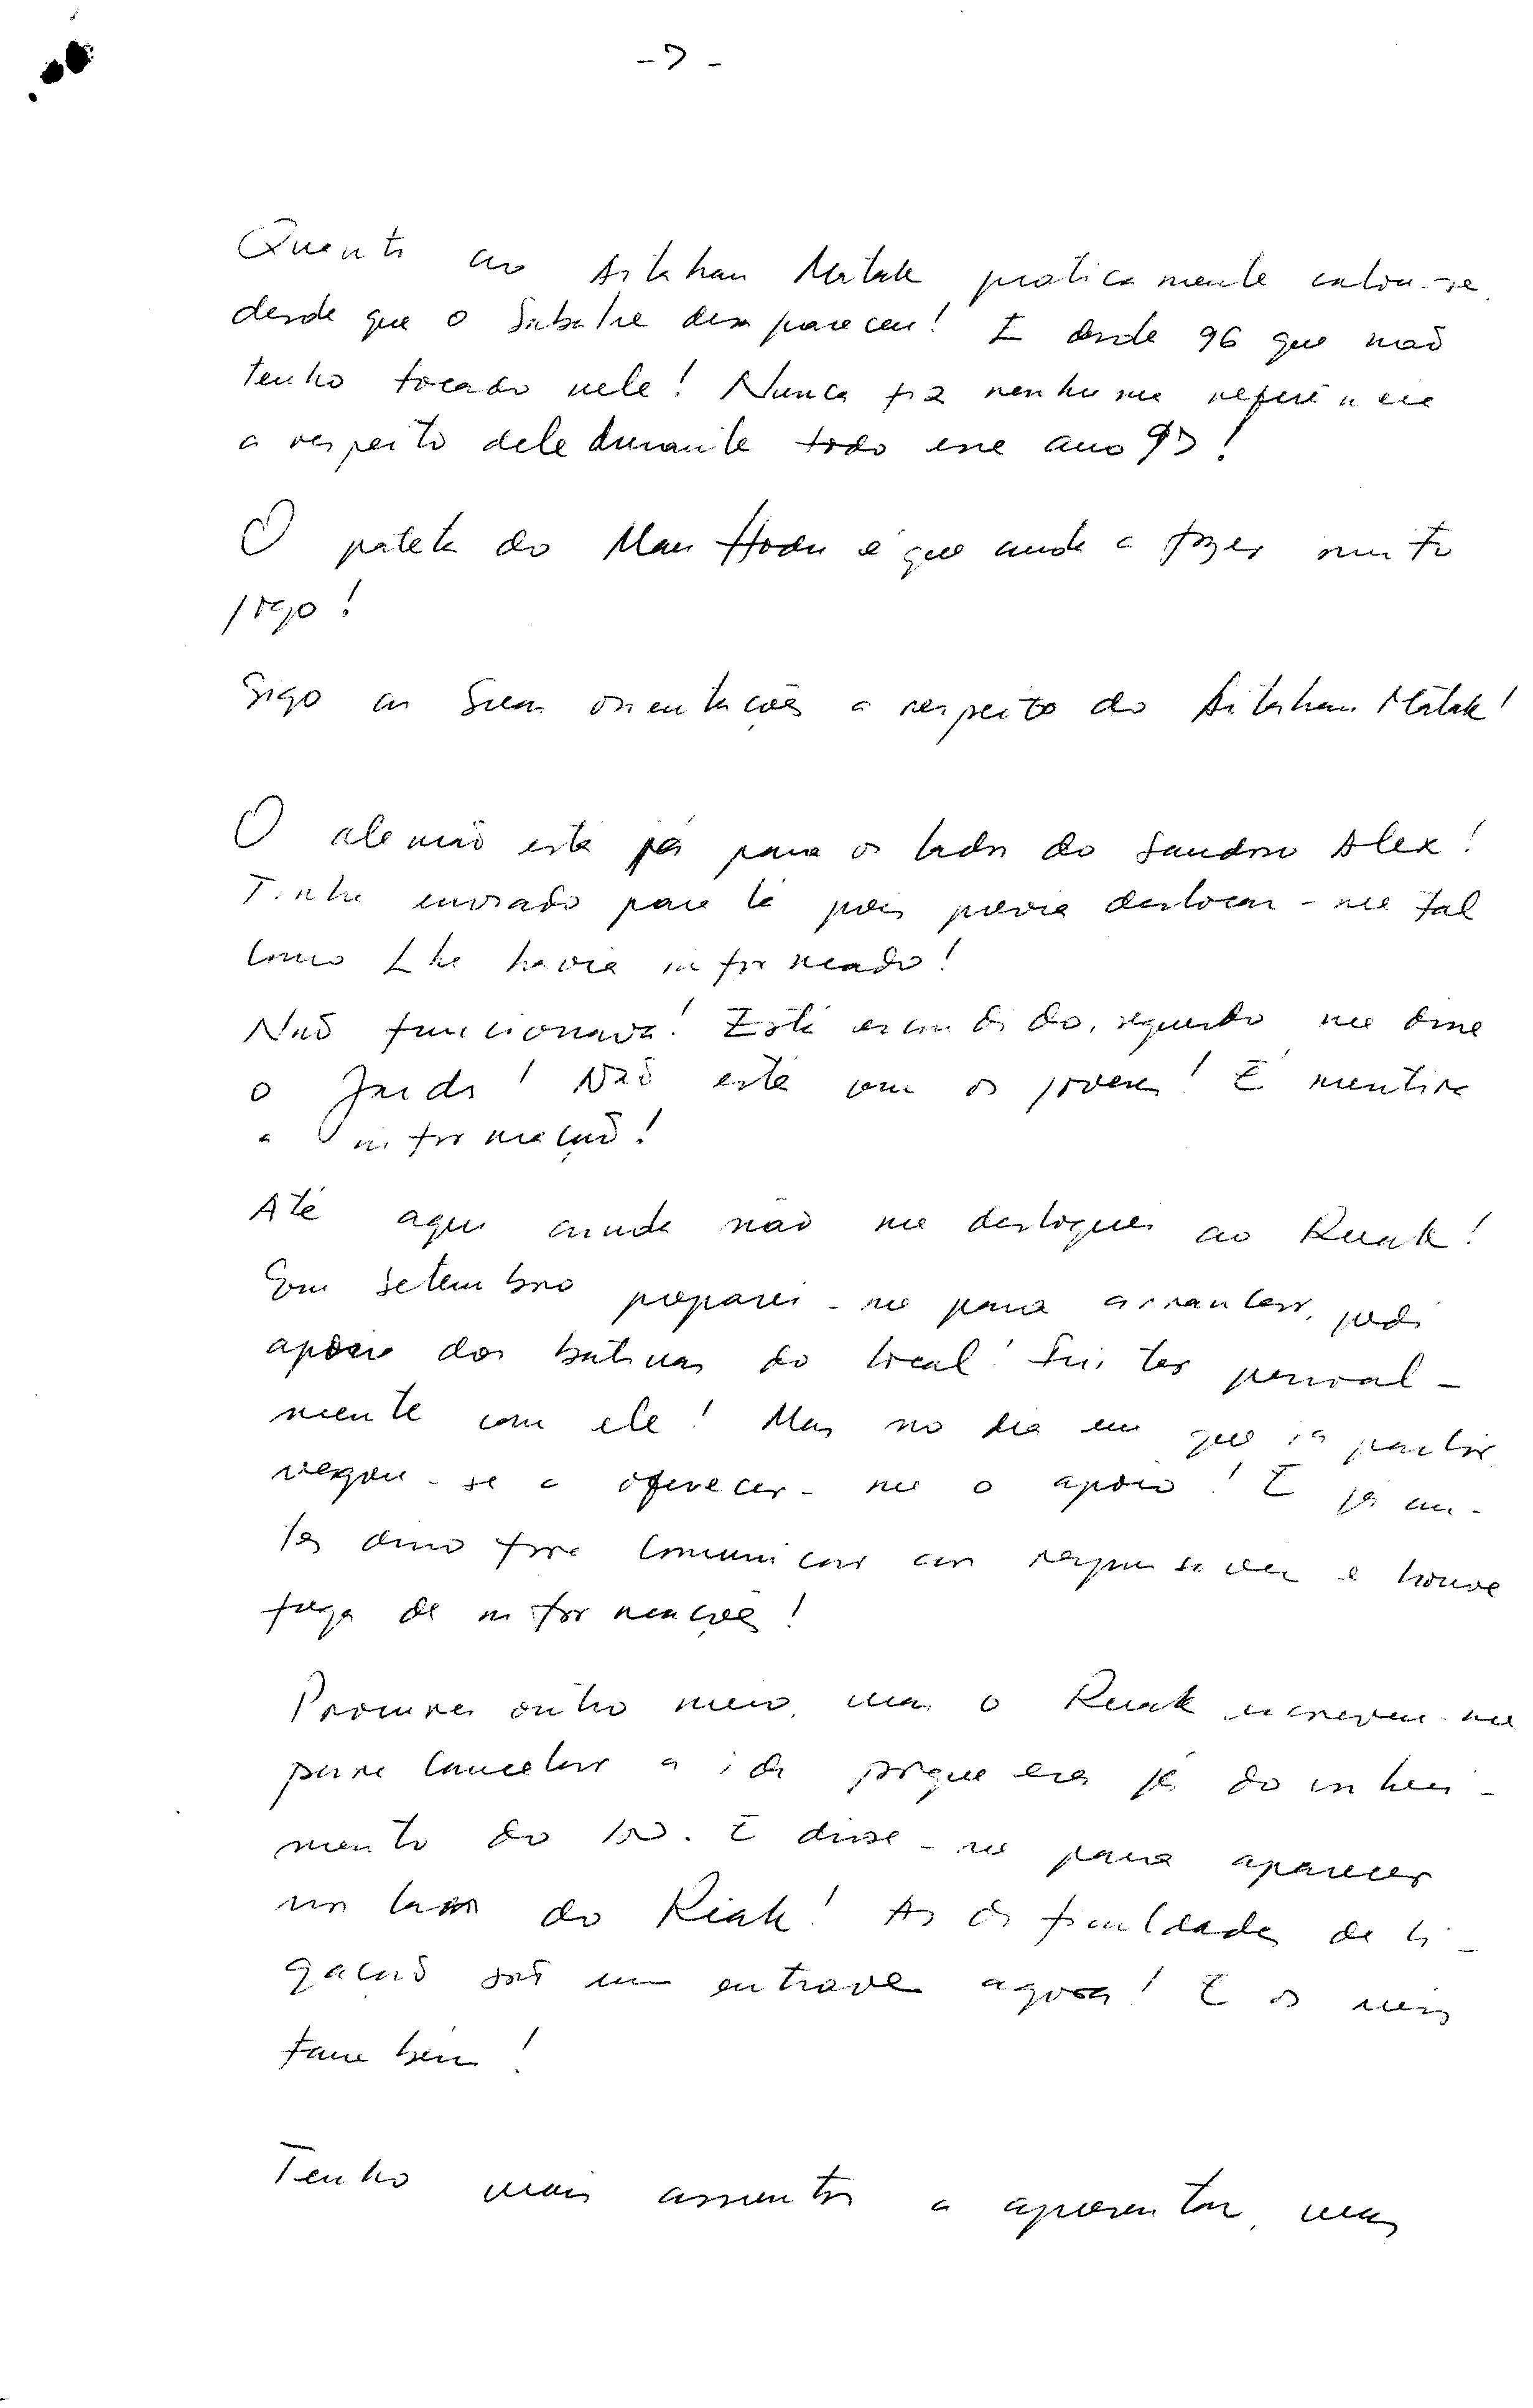 - 7 -
Quanto ao Aitahan Matak praticamente calou-se
desde que o Sabalae desapareceu! E desde 96 que não
tenho tocado nele! Nunca fiz nenhuma referência
a respeito dele durante todo esse ano 97!
O pateta do Mau Hodu é que anda a fazer muito
jogo!
Sigo as Suas orientações a respeito do Aitahan Matak!
O alemão está já para os lados do Sandro Alex!
Tinha enviado para lá pois previa deslocar-me tal
como Lhe havia informado!
Não funcionava! Está escondido, segundo me disse
o ! Não está com os jovens! É mentira
a informação!
Até aqui ainda não me desloquei ao Ruak!
Em Setembro preparei-me para arrancar, pedi
apoio dos do local! Fui ter pessoal-
mente com ele! Mas no dia em que ia partir
negou-se a oferecer-me o apoio! E já an-
tes disso fora comunicar aos responsáveis e houve
fuga de informações!
Procurei outro meio, mas o Ruak escreveu-me
para cancelar a ida porque era já do conheci-
mento do . E disse-me para aparecer
no do ! As dificuldades de li-
gação são um entrave agora! E os meios
também!
Tenho mais assuntos a apresentar, mas